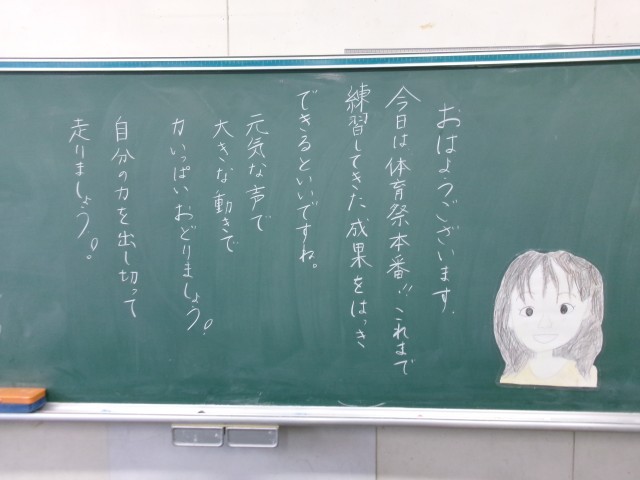 おはようございます.
今日は体育祭本番!! これまで
練習してきた成果をはっき
できるといいですね。
元気な声で
大きな動きで
力いっぱいおどりましょう!
自分の力を出し切って
走りましょう!!